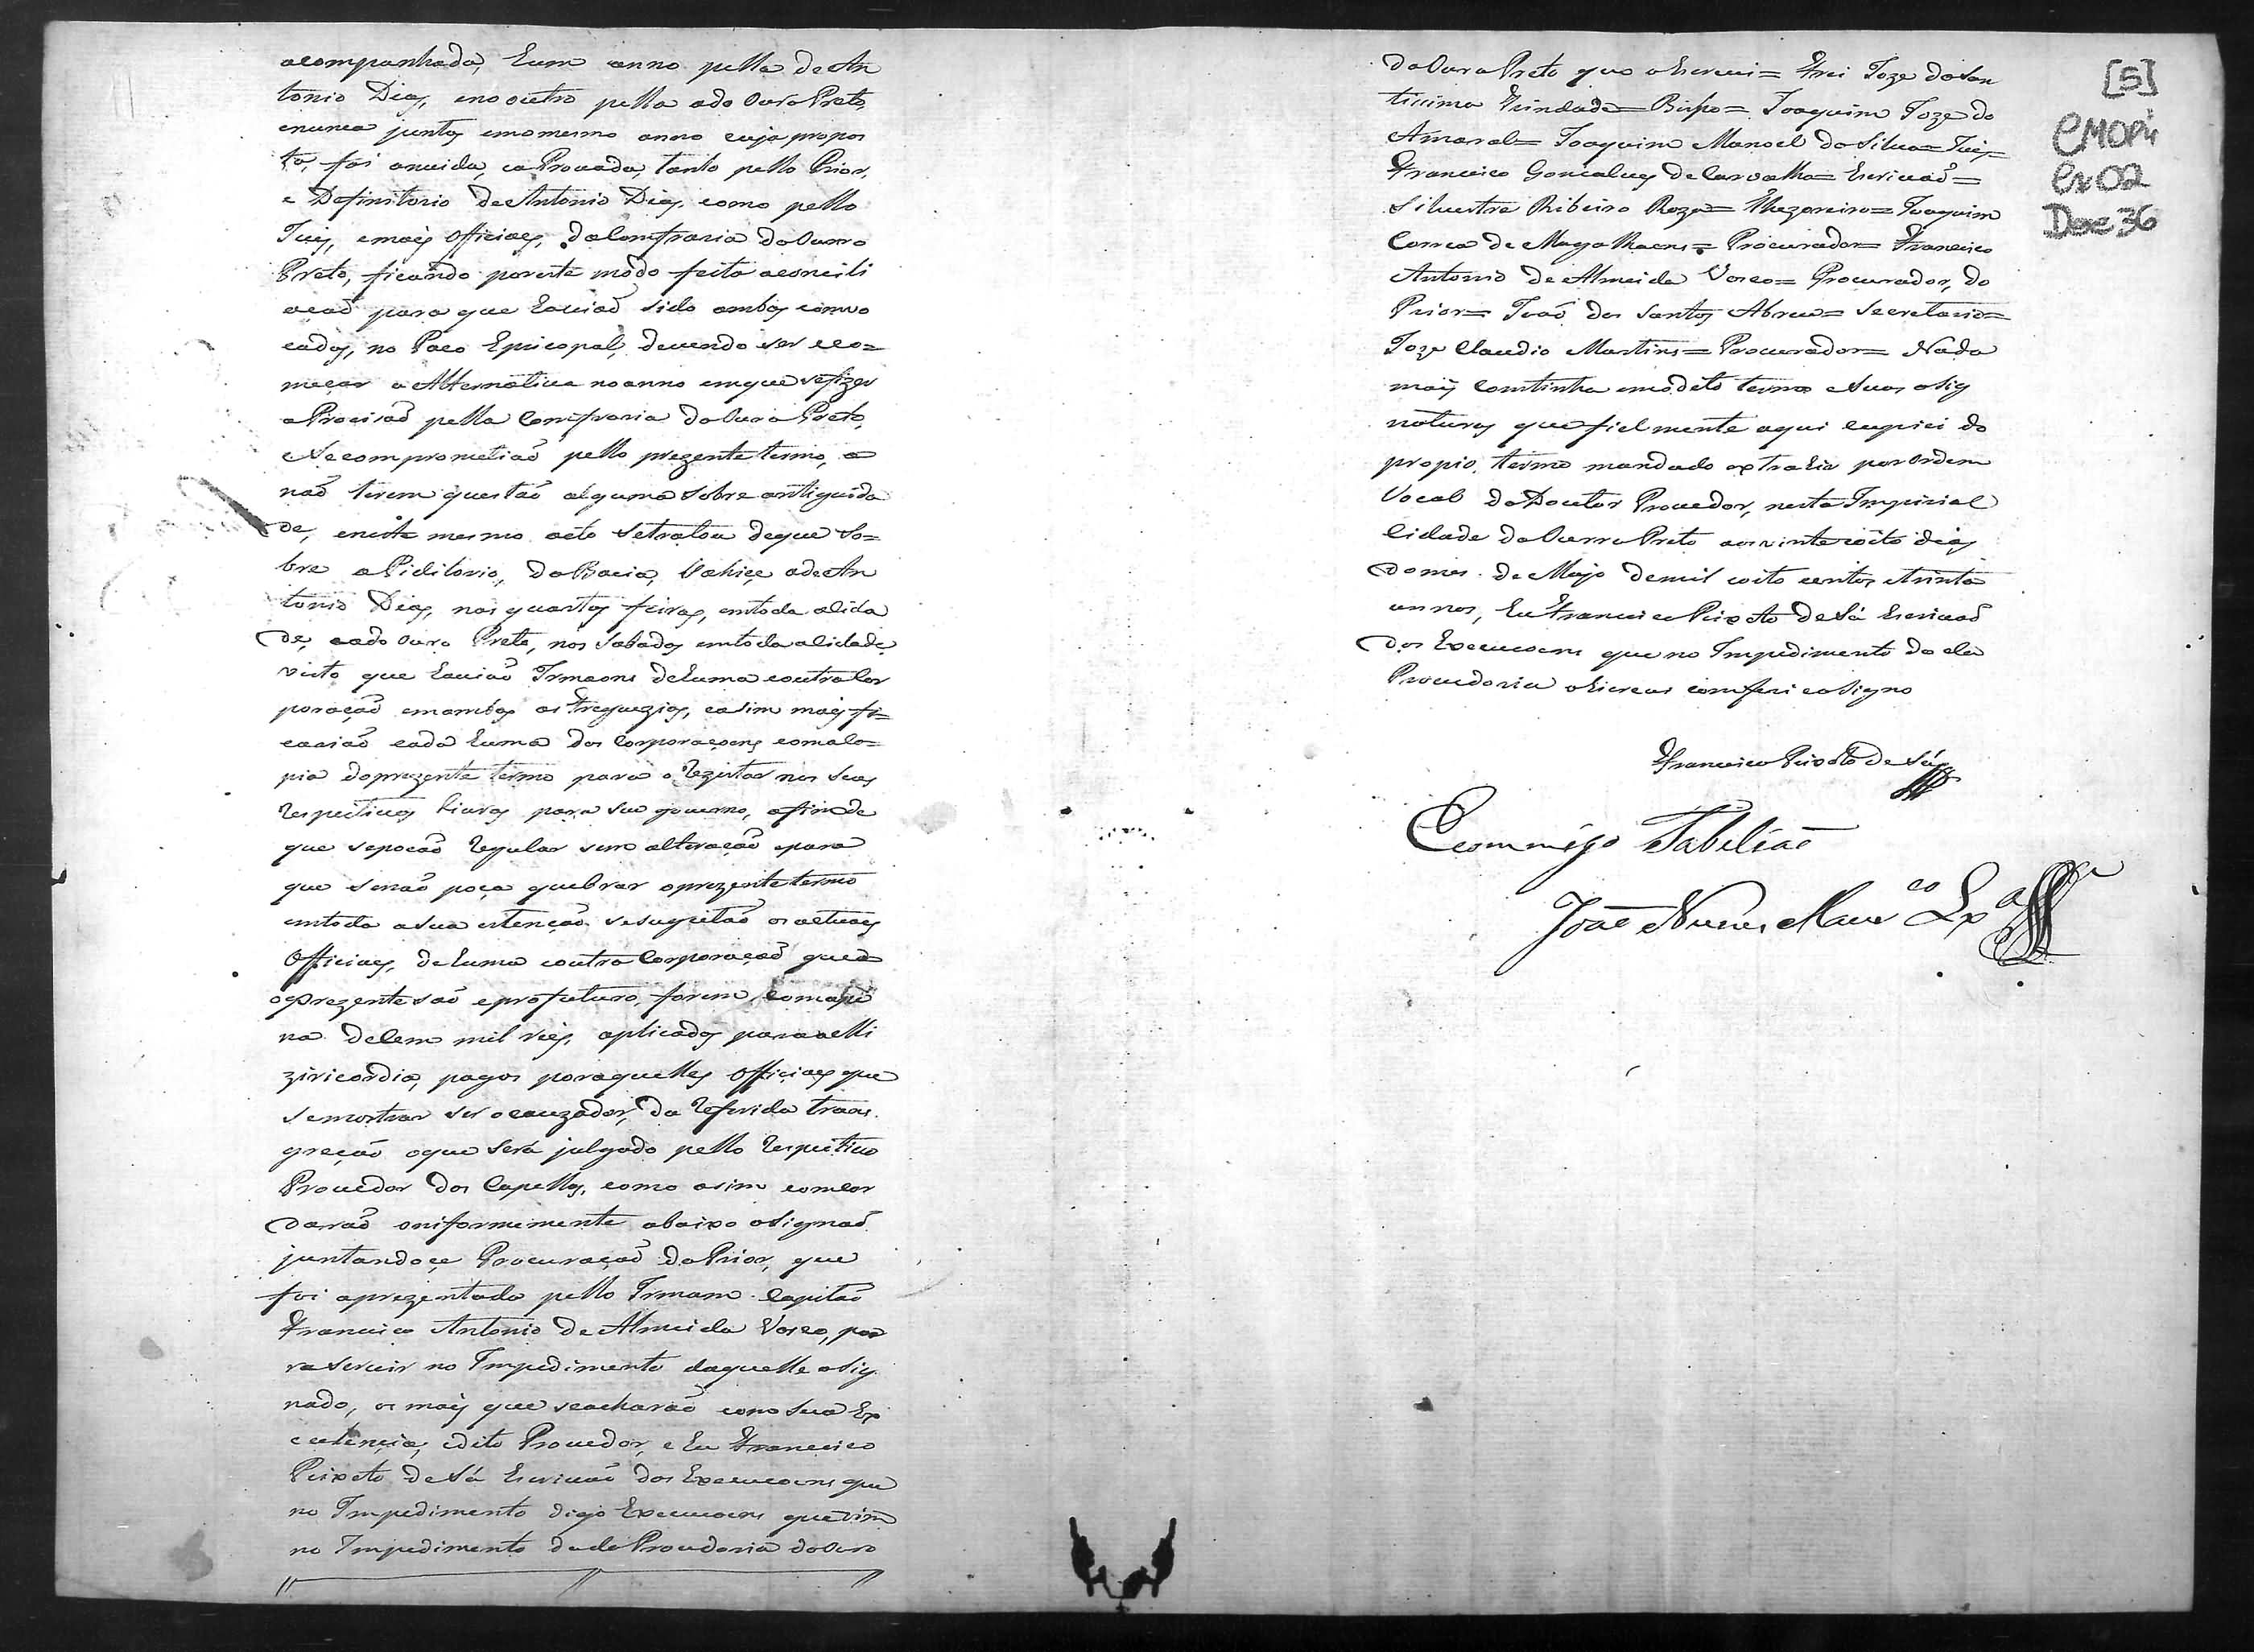 acompanhada, hum anno pella de An
tonio Dias, eno outro pella ado Ouro Preto,
enunca juntas emomesmo anno cuja propos
ta, foi anuida, eaProvada, tanto pello Prior,
e Definitorio de Antonio Dias, como pello
Juis, emais Officiaes, daComfraria do Ouro
Preto, ficando poreste modo feita aconcili
acaõ para que haviaõ sido ambas comvo
cadas, no Paco Episcopal, devendo ser eco=
meçar a Alternativa noanno emque sefizer
aProcisaõ pella Comfraria do Ouro Preto,
Secomprometiaõ pello prezente termo, a
naõ terem questaõ alguma sobre antiguida
de, eneste mesmo acto setratou deque so=
bre aPiditorio, da Bacia, sahice ade An
tonio Dias, nas quartas feiras, emtoda alida
de, eado Ouro Preto, nos Sabados emtoda alidade
visto que haviaõ Irmaons dehuma eoutra Cor
poraçaõ emambas as Freguezias, easim mais fi=
cariaõ cada huma das Corporaçoens comaco=
pia doprezente termo para o Rezistar nos seus
Respectivos Livros para seu governo, afimde
que sepoçaõ Regular sem alteraçaõ epara
que senaõ poça quebrar oprezente termo
emtoda asua estençaõ, sesugeitaõ os actuaes
Officiaes, dehuma eoutra Corporaçaõ que
oprezente saõ eprofuturo, forem, comape
na deCem mil reis, aplicados para a Mi
ziricordia, pagos poraquelles Officiaes que
semostrar ser ocauzador, da Referida trans
greçaõ oque será julgado pello Respectivo
Provedor das Capellas, como asim comcor
daraõ oniformemente abaixo asignaõ
juntandoce Procuraçaõ do Prior, que
foi aprezentada pello Irmam Capitaõ
Francisco Antonio de Almeida Vosco, pa
ra servir no Impedimento daquelle asig
nado, os mais que seacharaõ com Sua Ex
celencia, edito Provedor, e Eu Francisco
Peixoto de Sá Escrivaõ das Execucoens que
no Impedimento digo Execucoens que sirvo
no Impedimento doda Provedoria do Ouro
do Ouro Preto que oEscrevi= Frei Joze da San
ticima Trindade= Bispo= Joaquim Joze do
Amaral= Joaquim Manoel da Silva= Juis=
Francisco Goncalves de Carvalho= Escrivaõ=
Silvestre Ribeiro Roza= Thezoreiro= Joaquim
Correa de Magalhaens= Procurador= Francisco
Antonio de Almeida Vosco= Procurador, do
Prior= Joaõ dos Santos Abreu= Secretario=
Joze Claudio Martins= Procurador= Nada
mais comtinha emodito termo eSuas asig
naturas que fielmente aqui Copiei do
propio termo mandado extrahir por Ordem
Vocal do Doutor Provedor, nesta Impirial
Cidade do Ouro Preto aos vinteeoito dias
domes de Mayo demil eoito centos etrinta
annos, Eu Francisco Peixoto de Sá Escrivaõ
das Execucoens que no Impedimento do da
Provedoria oEscrevi comferi easigno
Francisco Peixoto de Sá
Commigo Tabeliaõ
Joaõ Nunes Mau co Lx a
[5]
CMOP
Cx02
Doc 36